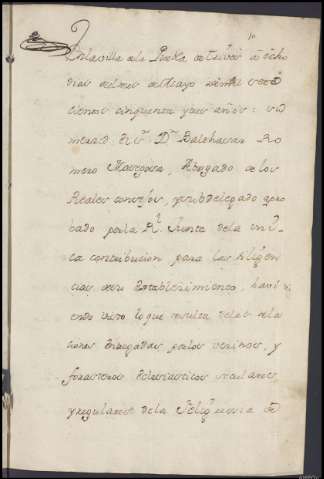 10
En la villa de la Puebla de Trives a ocho
dias del mes de Mayo de mil sete
cientos cinquenta y tres años: su
merced el Sr. Dn. Balthasar Ro
mero Abogado de los
Reales consejos, y subdelegado apro
bado por la Rl. Junta de la uni
ca contribucion para las diligen
cias de su establecimiento, havi
endo visto lo que resulta de las rela
ciones entregadas por los vecinos, y
forasteros eclesiasticos seculares
y regulares de la feligresia de